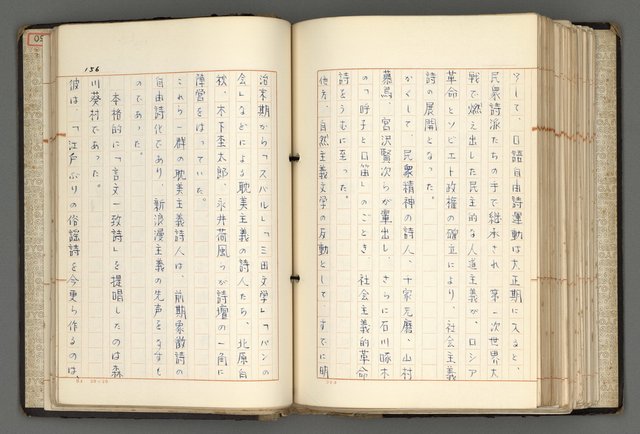 そして、口語自由詩運動は大正期に入ると、
民衆詩派たちの手で継承され、第一次世界大
戦で燃え出した民主的な人道主義が、ロシア
革命とソビエト政権の確立により、社会主義
詩の展開となった。
かくして、民衆精神の詩人、千家元麿、山村
暮鳥、宮沢賢次らが輩出し、さらに石川啄木
の「呼子と口笛」のごとき、社会主義的革命
詩をうむに至った。
他方、自然主義文学の反動として、すでに明
156
治末期から「スバル」「三田文学」「パンの
会」などによる耽美主義の詩人たち、北原白
秋、木下杢太郎、永井荷風らが詩壇の一角に
陣営をはっていた。
これら一群の耽美主義詩人は、前期象徴詩の
自由詩化であり、新浪漫主義の先声をなすも
のであった。
本格的に「言文一致詩」を提唱したのは森
川葵村であった。
彼は、「江戸ぶりの俗謡詩を今更ら作るのは、